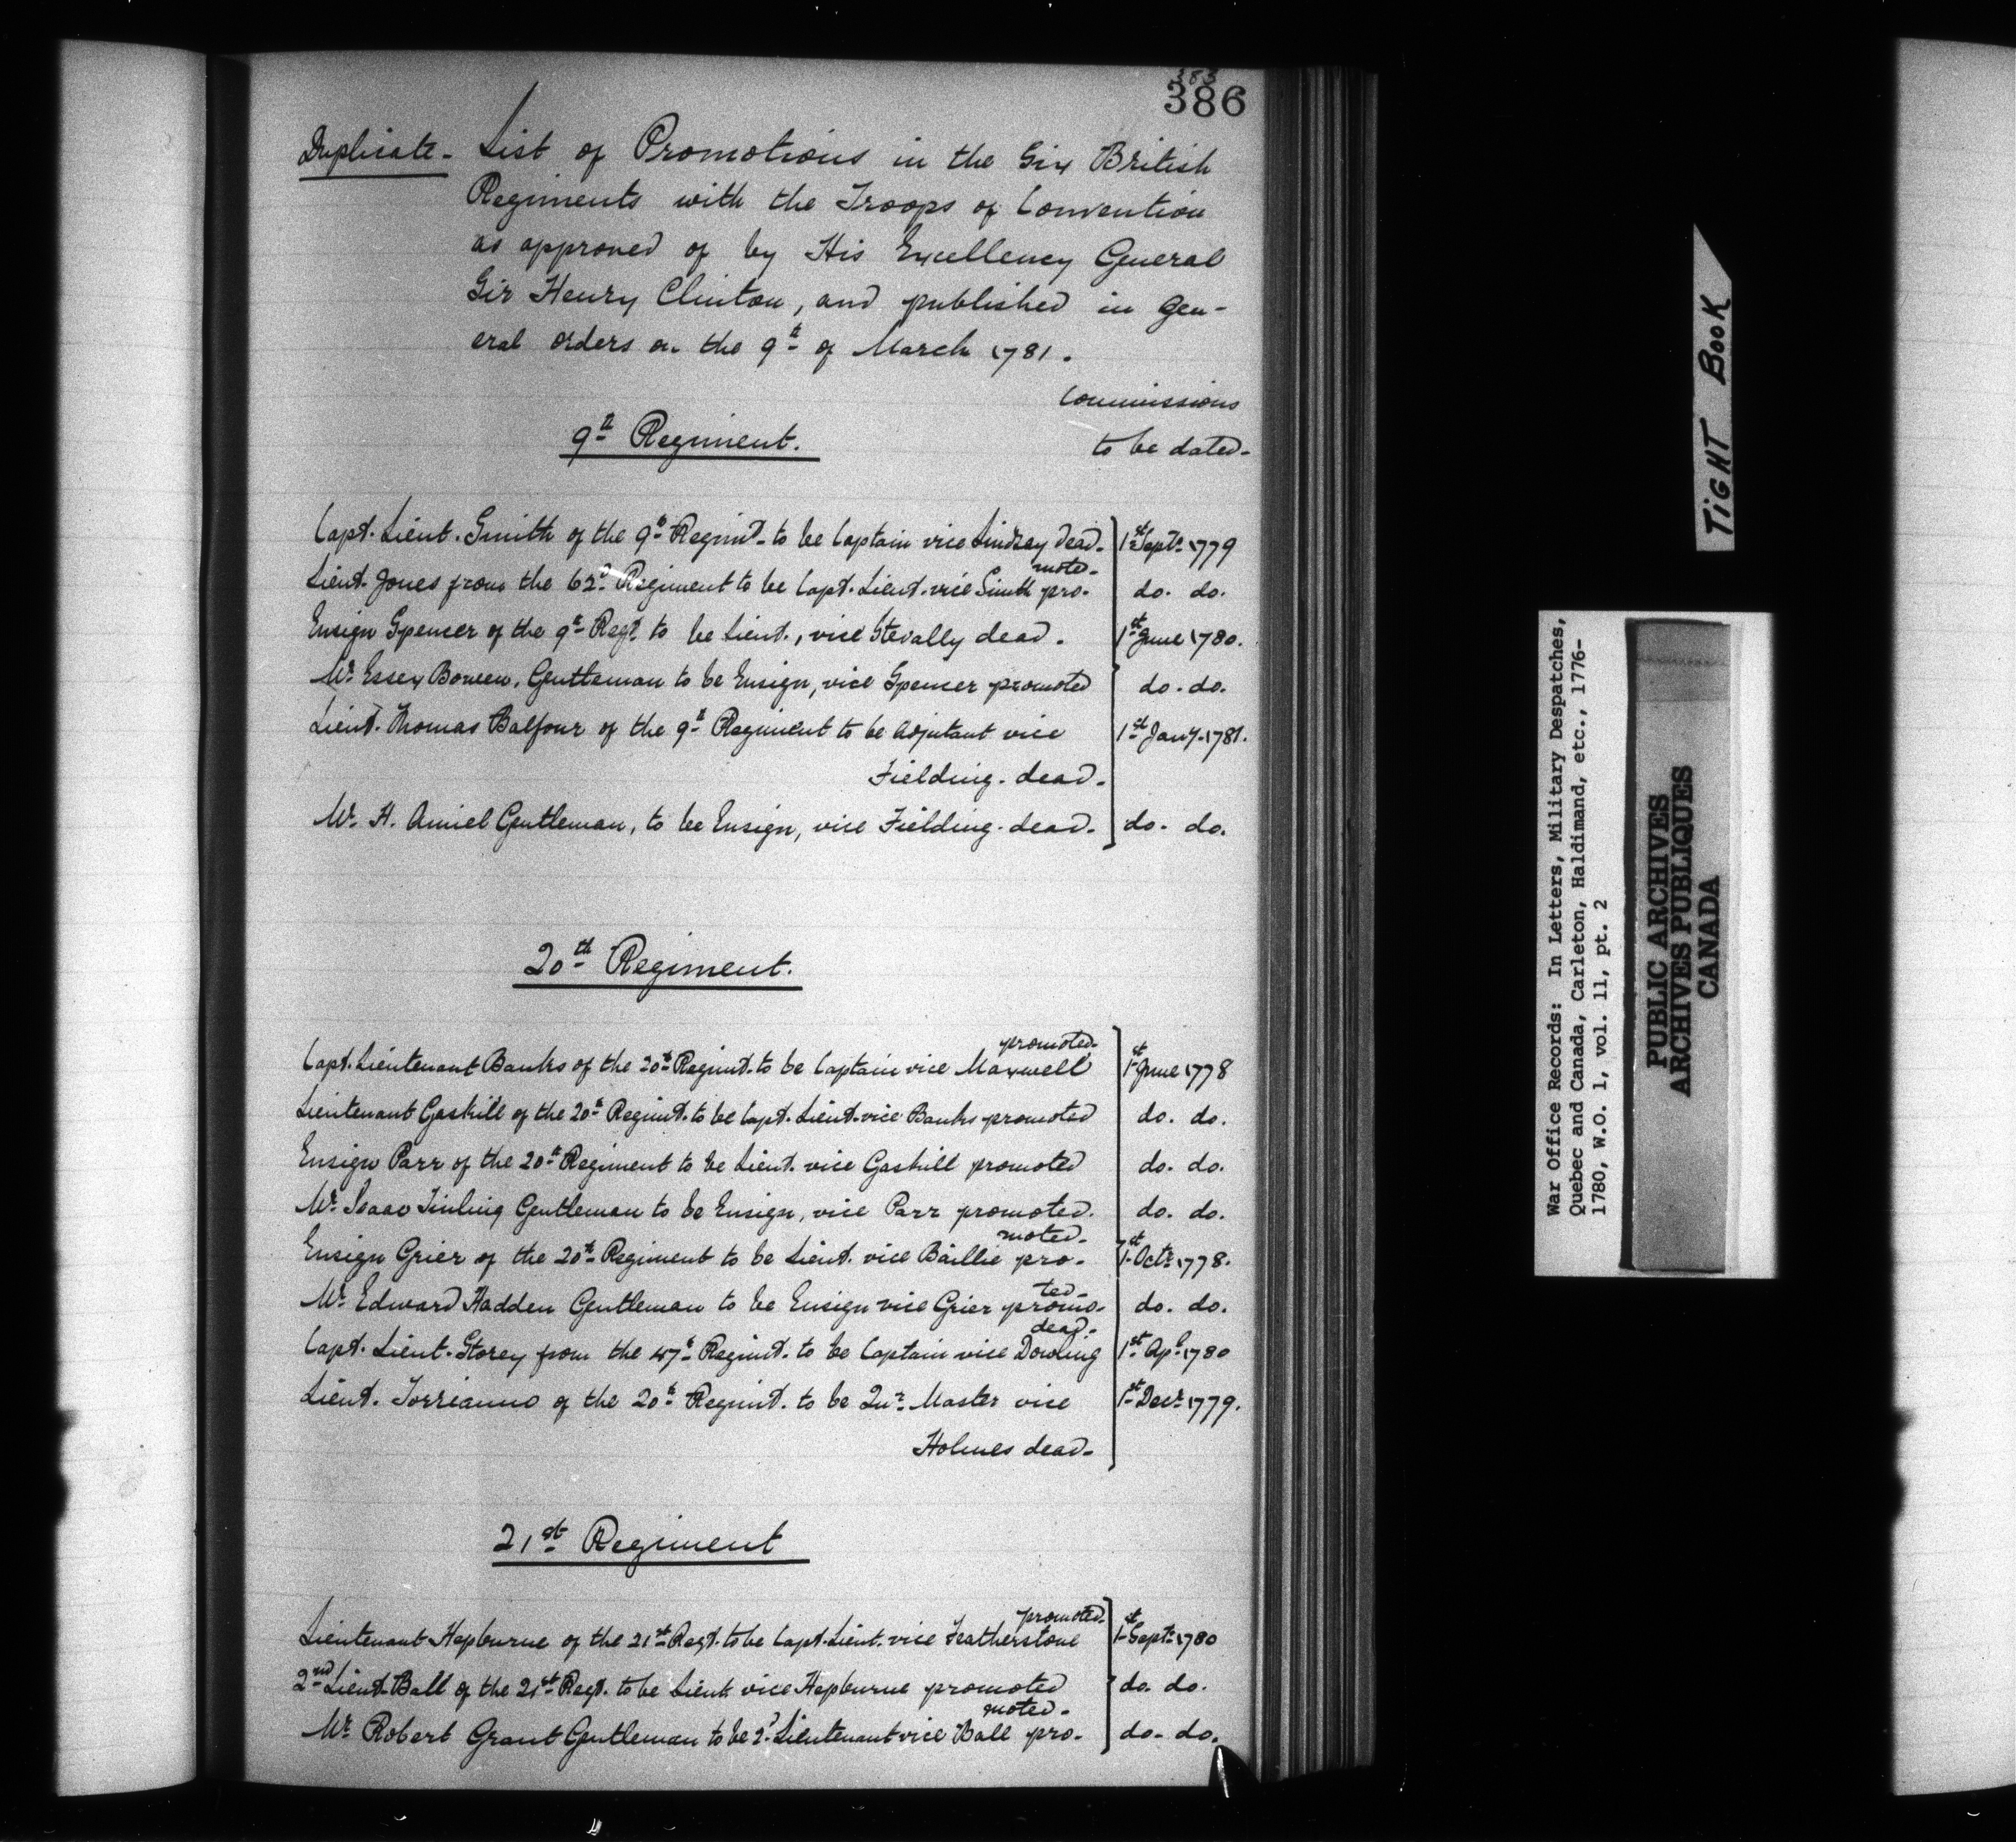 383
386
Duplicate - List of Promotions in the Six British
Regiments with the Troops of Convention
as approved of by His Excellency General
Sir Henry Clinton, and published in gen-
eral orders on the 9th of March 1781.
Commissions
9th Regiment.
to be dated-
Capt. Lieut. Smith of the 9th Regimt. to be Captain vice Lindsay dead. 1st Septr. 1779
moted-
Lieut. Jones from the 62d Regiment to be Capt. Lieut. vice Smith pro- do. do.
Ensign Spencer of the 9th Regt. to be Lieut., vice Stevally dead. 1st June 1780.
Mr. Essex Bowen, Gentleman to be Ensign, vice Spencer promoted do. do.
Lieut. Thomas Balfour of the 9th Regiment to be Adjutant vice 1st Jany. 1781.
Fielding. dead.
Mr. H. Amiel Gentleman, to be Ensign, vice Fielding. dead. do. do.
20th Regiment.
promoted-
Capt. Lieutenant Banks of the 20th Regimt. to be Captain vice Maxwell 1st June 1778
Lieutenant Gaskill of the 20th Regimt. to be Capt. Lieut. vice Banks promoted do. do.
Ensign Parr of the 20th Regiment to be Lieut. vice Gaskill promoted do. do.
Mr. Isaac Tinling Gentleman to be Ensign, vice Parr promoted. do. do.
moted-
Ensign Grier of the 20th Regiment to be Lieut. vice Baillie pro- 1st Octr. 1778.
ted-
Mr. Edward Hadden Gentleman to be Ensign vice Grier promo- do. do.
dead.-
Capt. Lieut. Storey from the 47th Regimt. to be Captain vice Dowling 1st Apl. 1780
Lieut. Torrianno of the 20th Regimt. to be Qur. Master vice 1st Decr. 1779.
Holmes dead-
21st Regiment
promoted-
Lieutenant Hepburne of the 21st Regt. to be Capt. Lieut. vice Featherstone 1st Septr. 1780
2nd Lieut. Ball of the 21st Regt. to be Lieut. vice Hepburne promoted do. do.
moted-
Mr. Robert Grant Gentleman to be 2d. Lieutenant vice Ball pro- do. do.
TIGHT BOOK
War Office Records: In Letters, Military Despatches,
Quebec and Canada, Carleton, Haldimand, etc., 1776-
1780, W.O. 1, vol. 11, pt. 2
PUBLIC ARCHIVES
ARCHIVES PUBLIQUES
CANADA